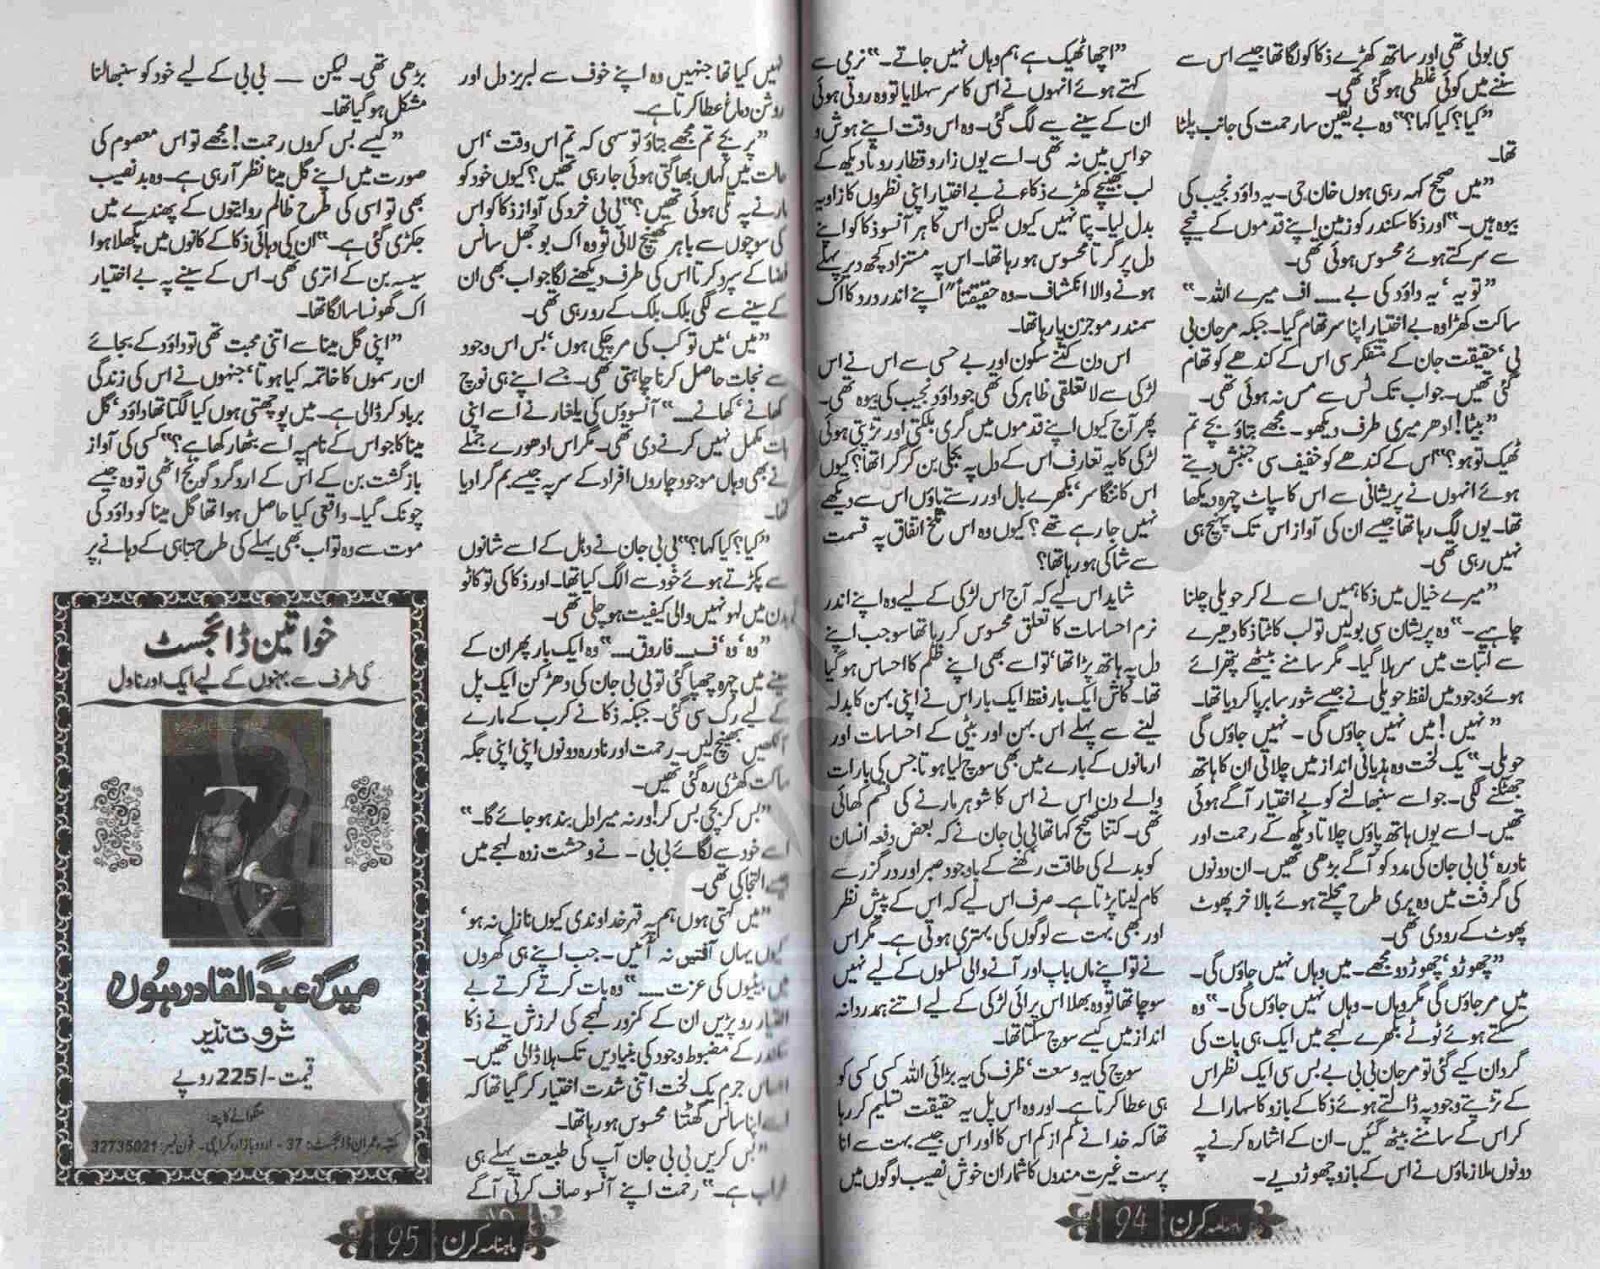 سی بولی تھی اور ساتھ کھڑے ذکا کو لگا تھا جیسے اس سے
سننے میں کوئی غلطی ہو گئی تھی۔
”کیا؟ کیا کہا؟“ وہ بے یقین سا رحمت کی جانب پلٹا
تھا۔
”میں صحیح کہہ رہی ہوں خان جی۔ یہ داؤد نجیب کی
بیوہ ہیں۔“ اور ذکا سکندر کو زمین اپنے قدموں کے نیچے
سے سرکتے ہوئے محسوس ہوئی تھی۔
”تو یہ‘ یہ داؤد کی بے ...... اف میرے اللہ۔“
ساکت کھڑا وہ بے اختیار اپنا سر تھام گیا۔ جبکہ مرجان بی
بی‘ حقیقت جان کے متفکر سی اس کے کندھے کو تھام
گئی تھیں۔ جو اب تک ٹس سے مس نہ ہوئی تھی۔
”بیٹا! ادھر میری طرف دیکھو۔ مجھے بتاؤ بچے تم
ٹھیک تو ہو؟“ اس کے کندھے کو خفیف سی جنبش دیتے
ہوئے انہوں نے پریشانی سے اس کا سپاٹ چہرہ دیکھا
تھا۔ یوں لگ رہا تھا جیسے ان کی آواز اس تک پہنچ ہی
نہیں رہی تھی۔
”میرے خیال میں ذکا ہمیں اسے لے کر حویلی چلنا
چاہیے۔“ وہ پریشان سی بولیں تو لب کاٹتا ذکا دھیرے
سے اثبات میں سر ہلا گیا۔ مگر سامنے بیٹھے پتھرائے
ہوئے وجود میں لفظ حویلی نے جیسے شور سا برپا کر دیا تھا۔
”نہیں! میں نہیں جاؤں گی ۔ نہیں جاؤں گی
حویلی۔“ یک لخت وہ ہذیانی انداز میں چلاتی ان کا ہاتھ
جھٹکنے لگی۔ جو اسے سنبھالنے کو بے اختیار آگے ہوئی
تھیں۔ اسے یوں ہاتھ پاؤں چلاتا دیکھ کے رحمت اور
نادرہ‘ بی بی جان کی مدد کو آگے بڑھی تھیں۔ ان دونوں
کی گرفت میں وہ بری طرح مچلتے ہوئے بالآخر پھوٹ
پھوٹ کے رو دی تھی۔
”چھوڑو‘ چھوڑ دو مجھے۔ میں وہاں نہیں جاؤں گی۔
میں مر جاؤں گی مگر وہاں۔ وہاں نہیں جاؤں گی۔“ وہ
سسکتے ہوئے ٹوٹے بکھرے لہجے میں ایک ہی بات کی
گردان کیے گئی تو مرجان بی بی بے بس سی ایک نظر اس
کے تڑپتے وجود پہ ڈالتے ہوئے ذکا کے بازو کا سہارا لے
کر اس کے سامنے بیٹھ گئیں۔ ان کے اشارہ کرنے پہ
دونوں ملازماؤں نے اس کے بازو چھوڑ دیے۔
”اچھا ٹھیک ہے ہم وہاں نہیں جاتے۔“ نرمی سے
کہتے ہوئے انہوں نے اس کا سر سہلایا تو وہ روتی ہوئی
ان کے سینے سے لگ گئی۔ وہ اس وقت اپنے ہوش و
حواس میں نہ تھی۔ اسے یوں زار و قطار روتا دیکھ کے
لب بھینچے کھڑے ذکاء نے بے اختیار اپنی نظروں کا زاویہ
بدل لیا۔ پتا نہیں کیوں لیکن اس کا ہر آنسو ذکا کو اپنے
دل پر گرتا محسوس ہو رہا تھا۔ اس پہ مستزاد کچھ دیر پہلے
ہونے والا انکشاف۔ وہ حقیقتاً اپنے اندر درد کا اک
سمندر موجزن پا رہا تھا۔
اس دن کتنے سکون اور بے حسی سے اس نے اس
لڑکی سے لا تعلقی ظاہر کی تھی جو داؤد نجیب کی بیوہ تھی۔
پھر آج کیوں اپنے قدموں میں گری بلکتی اور تڑپتی ہوئی
لڑکی کا یہ تعارف اس کے دل پہ بجلی بن کر گرا تھا؟ کیوں
اس کا ننگا سر‘ بکھرے بال اور رستے پاؤں اس سے دیکھے
نہیں جا رہے تھے؟ کیوں وہ اس تلخ اتفاق پہ قسمت
سے شاکی ہو رہا تھا؟
شاید اس لیے کہ آج اس لڑکی کے لیے وہ اپنے اندر
نرم احساسات کا تعلق محسوس کر رہا تھا سو جب اپنے
دل پہ ہاتھ پڑا تھا‘ تو اسے بھی اپنے ظلم کا احساس ہو گیا
تھا۔ کاش ایک بار فقط ایک بار اس نے اپنی بہن کا بدلہ
لینے سے پہلے اس بہن اور بیٹی کے احساسات اور
ارمانوں کے بارے میں بھی سوچ لیا ہوتا جس کی بارات
والے دن اس نے اس کا شوہر مارنے کی قسم کھائی
تھی۔ کتنا صحیح کہا تھا بی بی جان نے کہ بعض دفعہ انسان
کو بدلے کی طاقت رکھنے کے باوجود صبر اور درگزر سے
کام لینا پڑتا ہے۔ صرف اس لیے کہ اس کے پیش نظر
اور بھی بہت سے لوگوں کی بہتری ہوتی ہے۔ مگر اس
نے تو اپنے ماں باپ اور آنے والی نسلوں کے لیے نہیں
سوچا تھا تو وہ بھلا اس پرائی لڑکی کے لیے اتنے ہمدردانہ
انداز میں کیسے سوچ سکتا تھا۔
سوچ کی یہ وسعت‘ ظرف کی یہ بڑائی اللہ کسی کسی کو
ہی عطا کرتا ہے۔ اور وہ اس پل یہ حقیقت تسلیم کر رہا
تھا کہ خدا نے کم از کم اس کا اور اس جیسے بہت سے انا
پرست غیرت مندوں کا شمار ان خوش نصیب لوگوں میں
ماہنامہ کرن 94
نہیں کیا تھا جنہیں وہ اپنے خوف سے لبریز دل اور
روشن دماغ عطا کرتا ہے۔
”پر بچے تم مجھے بتاؤ تو سہی کہ تم اس وقت‘ اس
حالت میں کہاں بھاگتی ہوئی جا رہی تھیں؟ کیوں خود کو
مارنے پہ تلی ہوئی تھیں؟“ بی بی خرد کی آواز ذکا کو اس
کی سوچوں سے باہر کھینچ لائی تو وہ اک بوجھل سانس
فضا کے سپرد کرتا اس کی طرف دیکھنے لگا جو اب بھی ان
کے سینے سے لگی بلک بلک کے رو رہی تھی۔
”میں‘ میں تو کب کی مر چکی ہوں‘ بس اس وجود
سے نجات حاصل کرنا چاہتی تھی۔ جسے اپنے ہی نوچ
کھانے‘ کھانے......“ آنسوؤں کی یلغار نے اسے اپنی
بات مکمل نہیں کرنے دی تھی۔ مگر اس ادھورے جملے
نے بھی وہاں موجود چاروں افراد کے سر پہ جیسے بم گرا دیا
تھا۔
”کیا؟ کیا کہا؟“ بی بی جان نے دہل کے اسے شانوں
سے پکڑتے ہوئے خود سے الگ کیا تھا۔ اور ذکا کی تو کاٹو
بدن میں لہو نہیں والی کیفیت ہو چلی تھی۔
”وہ‘ وہ‘ ف ۔۔۔ فاروق......“ وہ ایک بار پھر ان کے
سینے میں چہرہ چھپا گئی تو بی بی جان کی دھڑکن ایک پل
کے لیے رک سی گئی۔ جبکہ ذکا نے کرب کے مارے
آنکھیں بھینچ لیں۔ رحمت اور نادرہ دونوں اپنی اپنی جگہ
ساکت کھڑی رہ گئی تھیں۔
”بس کر بچی بس کر! ورنہ میرا دل بند ہو جائے گا۔“
اسے خود سے لگائے بی بی۔ نے وحشت زدہ لہجے میں
جیسے التجا کی تھی۔
”میں کہتی ہوں ہم پہ قہر خداوندی کیوں نازل نہ ہو‘
کیوں یہاں آفتیں نہ آئیں۔ جب اپنے ہی گھروں
میں بیٹیوں کی عزت ......“ وہ بات کرتے کرتے بے
اختیار رو پڑیں ان کے کمزور لہجے کی لرزش نے ذکا
سکندر کے مضبوط وجود کی بنیادیں تک ہلا ڈالی تھیں۔
احساس جرم یک لخت اتنی شدت اختیار کر گیا تھا کہ
اسے اپنا سانس گھٹتا محسوس ہو رہا تھا۔
”بس کریں بی بی جان آپ کی طبیعت پہلے ہی
خراب ہے۔“ رحمت اپنے آنسو صاف کرتی آگے
بڑھی تھی۔ لیکن ۔۔ بی بی کے لیے خود کو سنبھالنا
مشکل ہو گیا تھا۔
”کیسے بس کروں رحمت! مجھے تو اس معصوم کی
صورت میں اپنے گل مینا نظر آ رہی ہے۔ وہ بد نصیب
بھی تو اسی کی طرح ظالم روایتوں کے پھندے میں
جکڑی گئی ہے۔“ ان کی دہائی ذکا کے کانوں میں پگھلا ہوا
سیسہ بن کے اتری تھی۔ اس کے سینے پہ بے اختیار
اک گھونسا سا لگا تھا۔
”اپنی گل مینا سے اتنی محبت تھی تو داؤد کے بجائے
ان رسموں کا خاتمہ کیا ہوتا‘ جنہوں نے اس کی زندگی
برباد کر ڈالی ہے۔ میں پوچھتی ہوں کیا لگتا تھا داؤد‘ گل
مینا کا جو اس کے نام پہ اسے بٹھا رکھا ہے؟“ کسی کی آواز
بازگشت بن کے اس کے ارد گرد گونج اٹھی تو وہ جیسے
چونک گیا۔ واقعی کیا حاصل ہوا تھا گل مینا کو داؤد کی
موت سے وہ تو اب بھی پہلے کی طرح تباہی کے دہانے پر
خواتین ڈائجسٹ
کی طرف سے بہنوں کے لیے ایک اور ناول
میں عبدالقادر ہوں
ثروت نذیر
قیمت -/225 روپے
منگوانے کا پتہ:
مکتبہ عمران ڈائجسٹ: 37 - اردو بازار، کراچی۔ فون نمبر: 32735021
ماہنامہ کرن 95